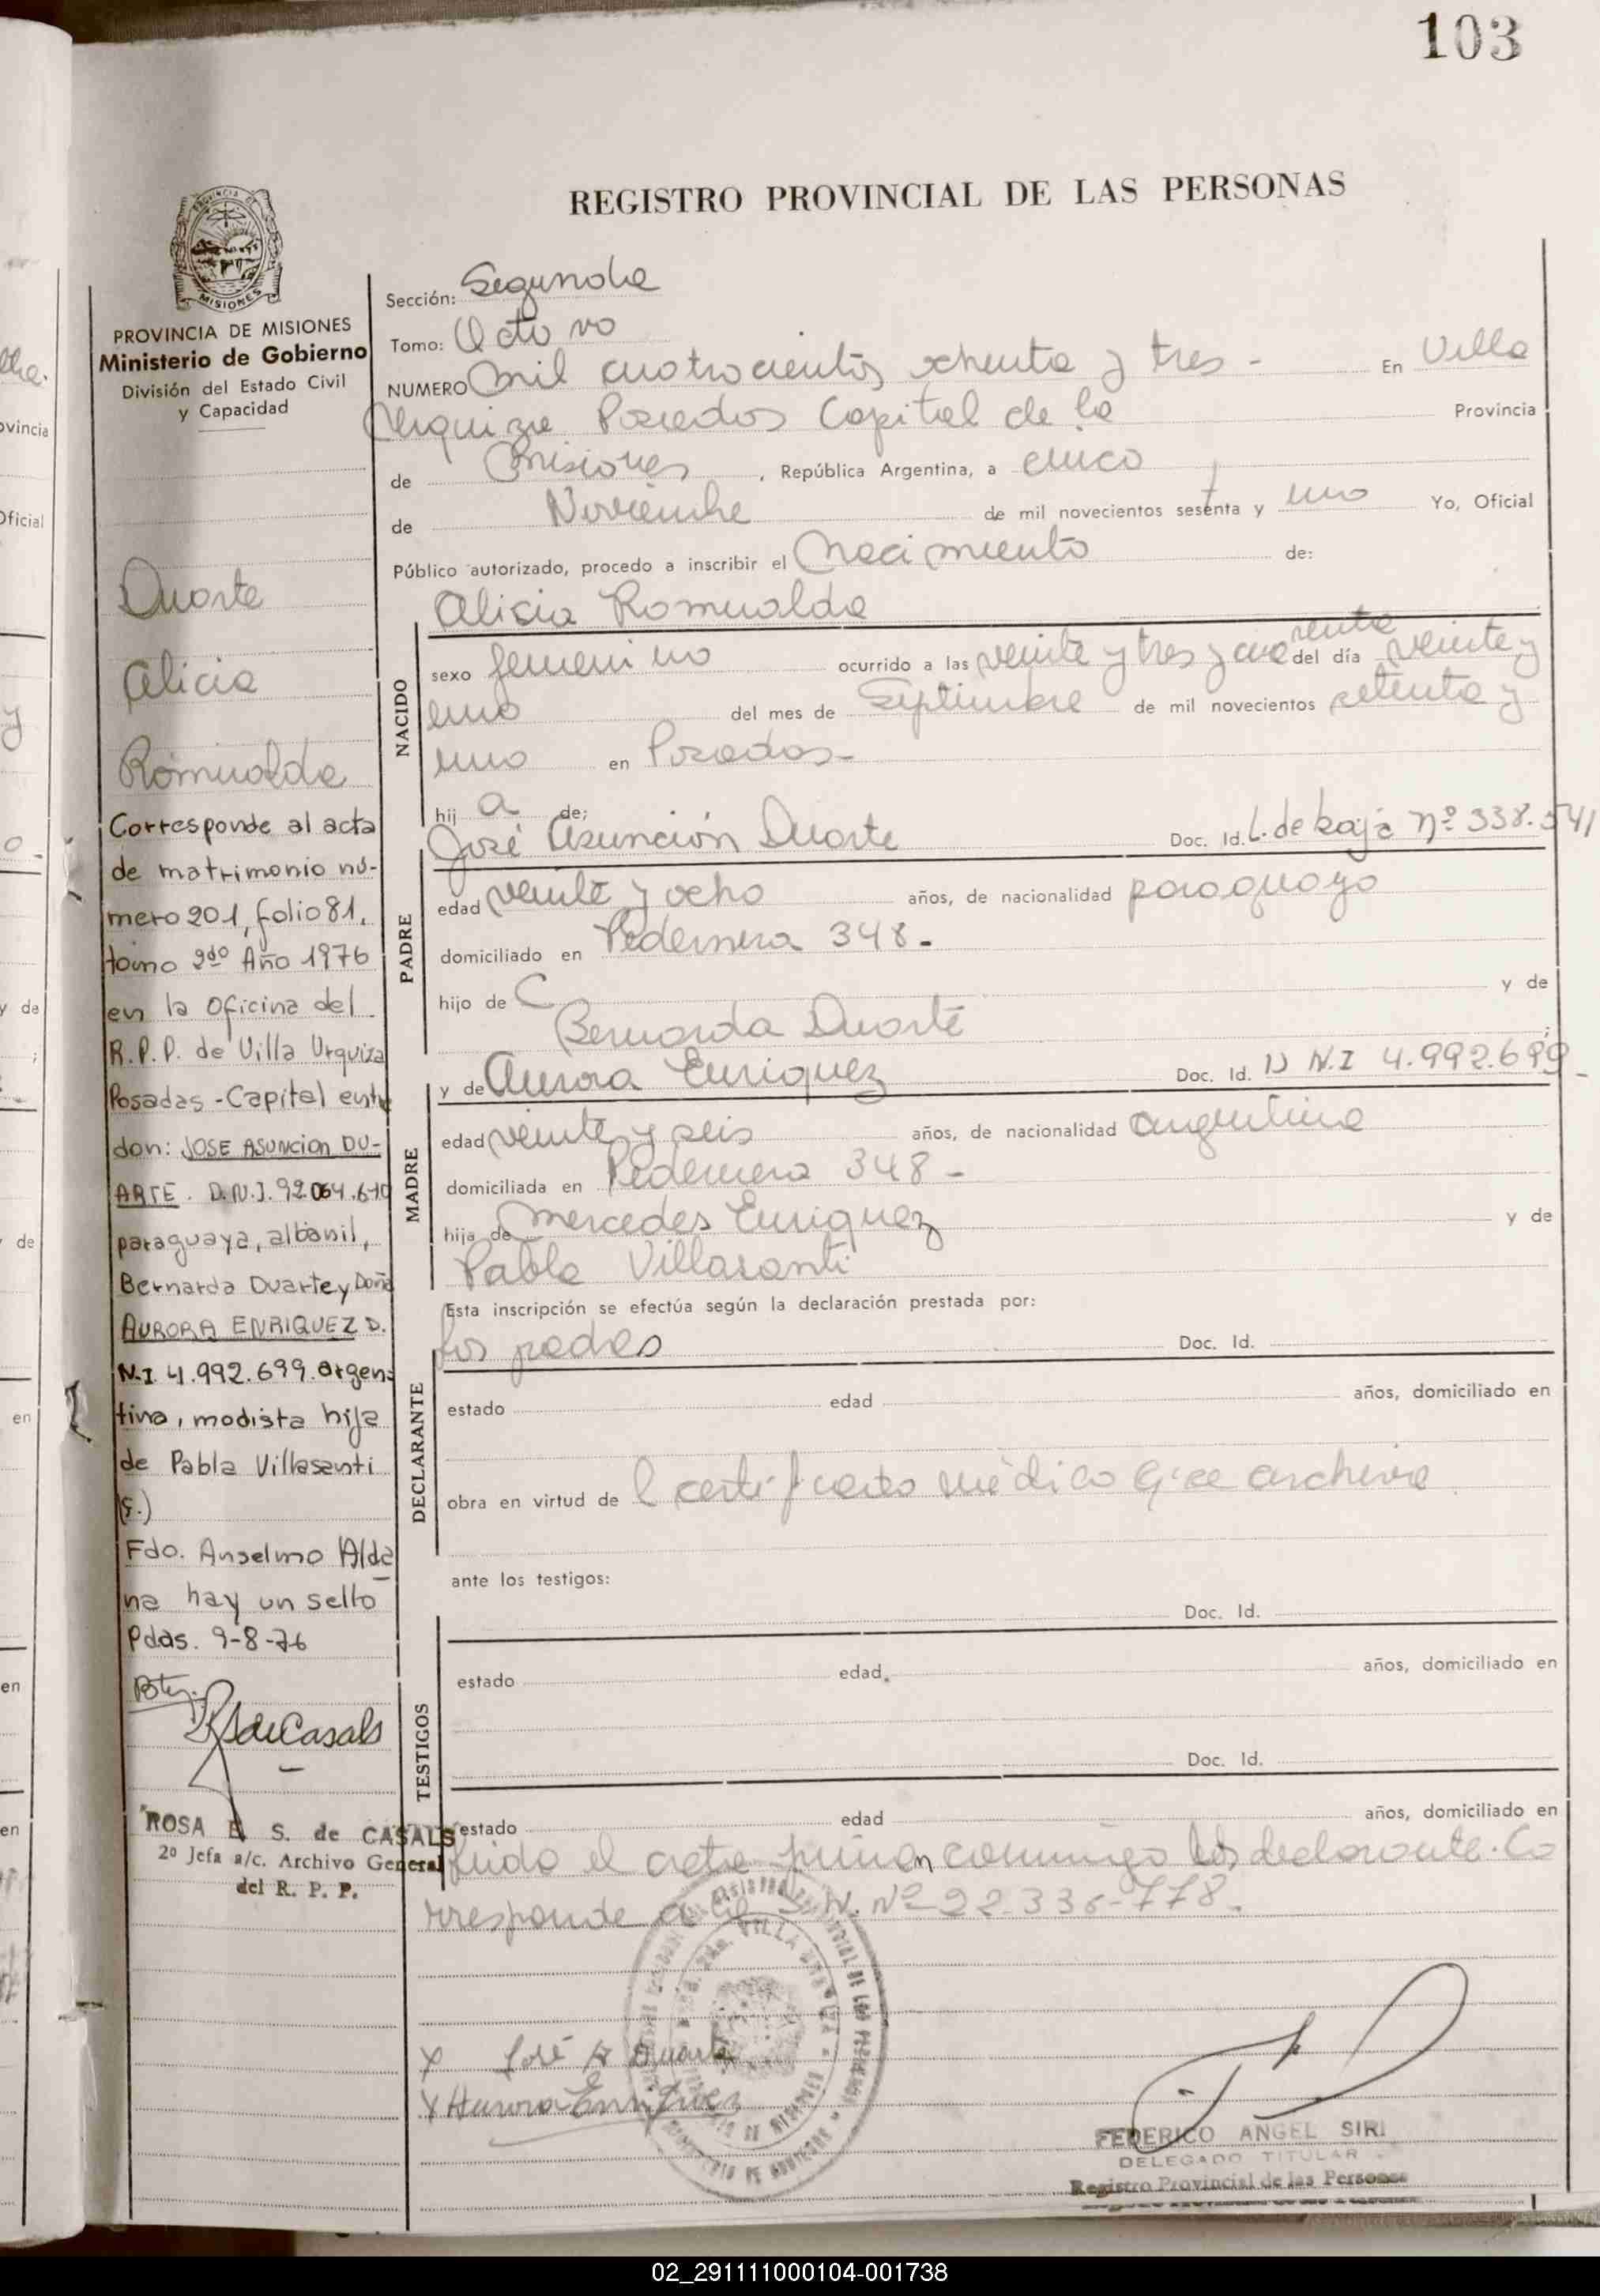 103
REGISTRO PROVINCIAL DE LAS PERSONAS
MISIONES
PROVINCIA DE MISIONES
Ministerio de Gobierno
División del Estado Civil
y Capacidad
Duarte
Alicia
Romualda
Corresponde al acta
de matrimonio nú-
mero 201, folio 81,
tomo 2do Año 1976
en la Oficina del
R.P.P. de Villa Urquiza
Posadas - Capital entre
don: JOSE ASUNCION DU-
ARTE. D.N.I. 92.064.610
paraguaya, albanil,
Bernarda Duarte y Doña
AURORA ENRIQUEZ D.
N.I. 4.992.699. argen-
tina, modista hija
de Pabla Villasanti
Fdo. Anselmo Alda
na hay un sello
Pdas. 9-8-76
ROSA E. S. de CASALS
2º Jefa a/c. Archivo General
del R. P. P.
Sección: Segunda
Tomo: Octavo
NUMERO mil cuatrocientos ochenta y tres - En Villa
Urquiza Posadas Capital de la Provincia
de Misiones, República Argentina, a cinco
de Noviembre de mil novecientos sesenta y uno Yo, Oficial
Público autorizado, procedo a inscribir el Nacimiento de:
Alicia Romualda
NACIDO
sexo femenino ocurrido a las veinte y tres y cuarenta del día veinte y
uno del mes de Septiembre de mil novecientos setenta y
uno en Posadas-
hij a de;
José Asunción Duarte Doc. Id. L. de baja nº 338.541
PADRE
edad veinte y ocho años, de nacionalidad paraguayo
domiciliado en Pedernera 348-
hijo de y de
Bernarda Duarte ;
y de Aurora Enriquez Doc. Id. D N.I 4.992.699-
MADRE
edad veinte y seis años, de nacionalidad argentina
domiciliada en Pedernera 348-
hija de Mercedes Enriquez y de
Pabla Villasanti
Esta inscripción se efectúa según la declaración prestada por:
los padres Doc. Id.
DECLARANTE
estado edad años, domiciliado en
obra en virtud de l certificado médico q' se archiva
ante los testigos:
Doc. Id.
TESTIGOS
estado edad. años, domiciliado en
Doc. Id.
estado edad años, domiciliado en
Leída el acta firman conmigo los declarante. Co
rresponde a Nº 22.336-778.
X José A Duarte
X Aurora Enriquez
FEDERICO ANGEL SIRI
DELEGADO TITULAR
Registro Provincial de las Personas
02_291111000104-001738